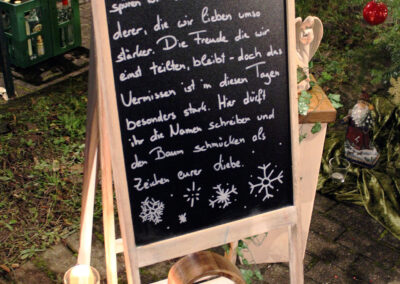 spüren
derer, die wir lieben umso
stärker. Die Freude die wir
einst teilten, bleibt - doch das
Vermissen ist in diesen Tagen
besonders stark. Hier dürft
ihr die Namen schreiben und
den Baum schmücken als
Zeichen eurer Liebe.